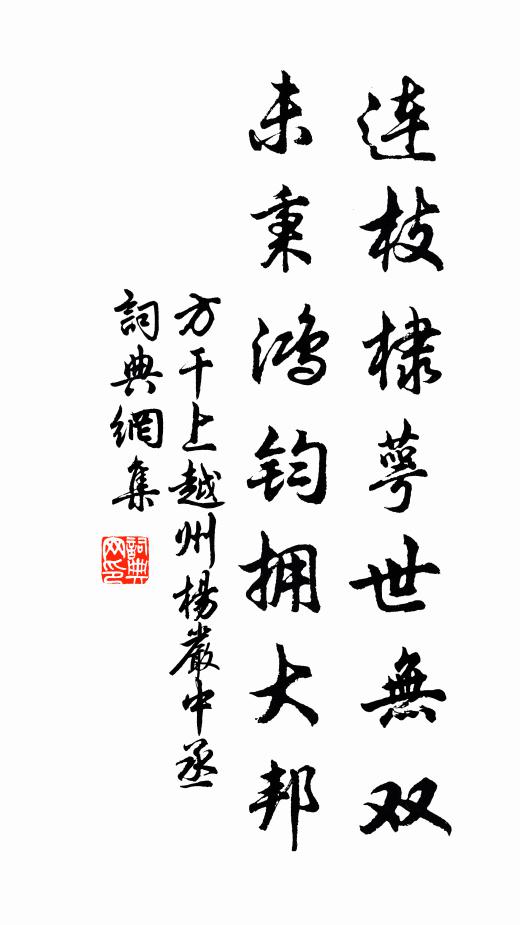 连枝棣萼世無双
未秉鸿钧拥大邦
方干上越州楊嚴中丞
詞典網集
詞典网印